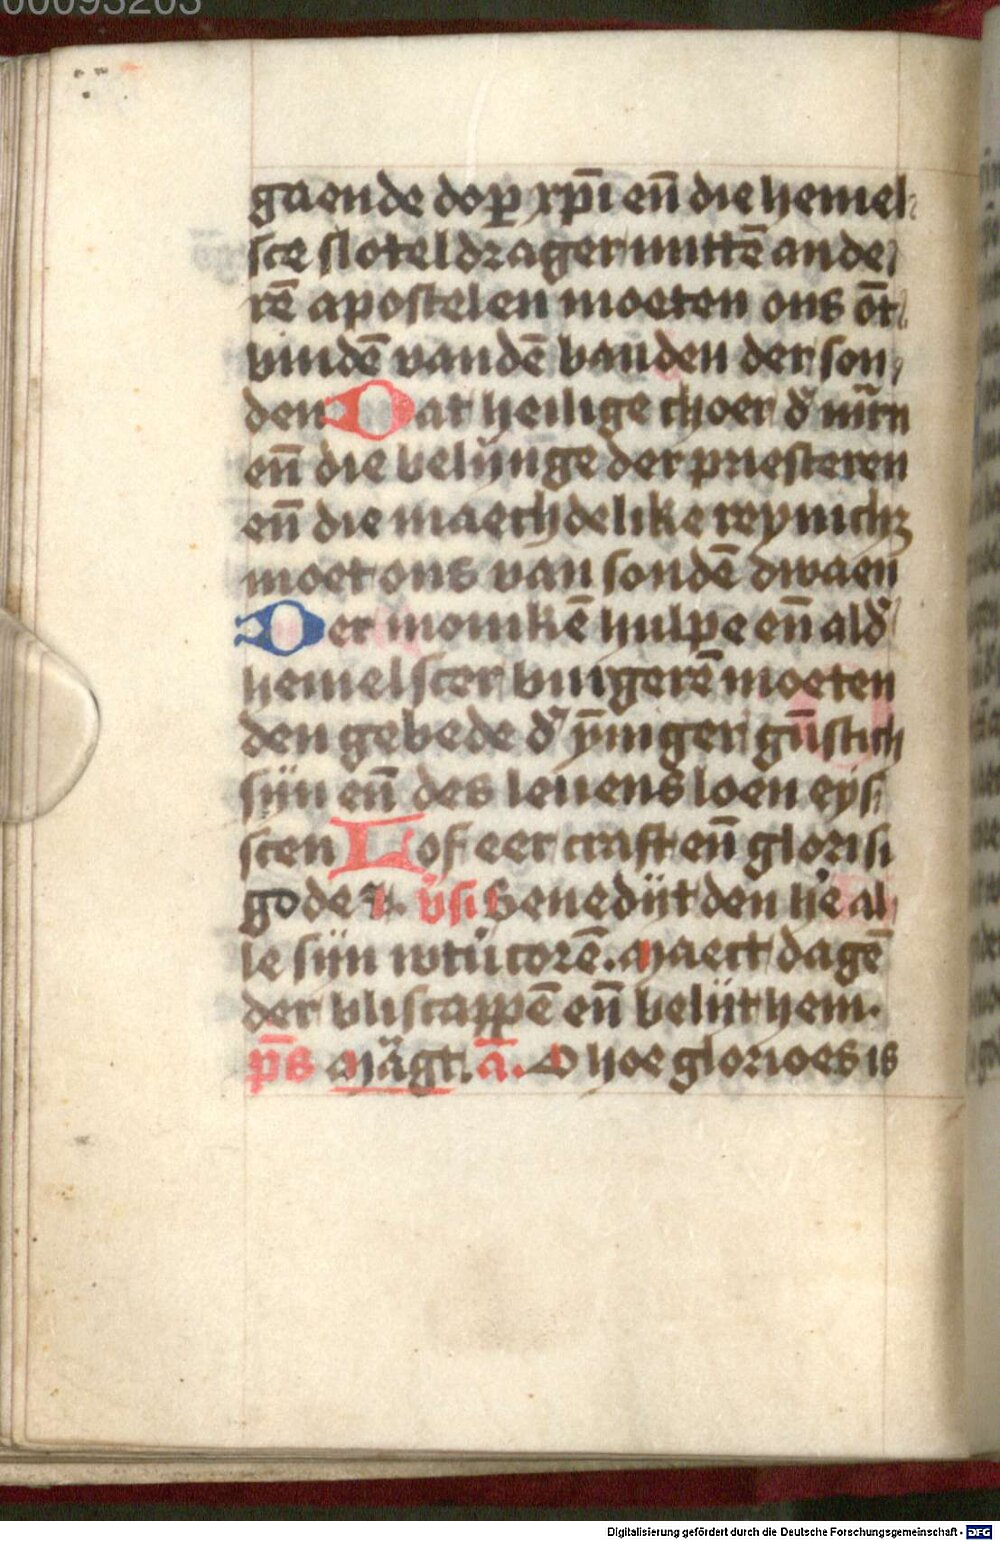 00093203
gaende dop xp̄i en̄ die hemel
sce sloteldrager mittē ande
rē apostelen moeten ons ōt
bindē vandē banden der son
den Dat heilige choer d' m̄rn
en̄ die belijnge der priesteren
en̄ die maechdelike reynichz
moet ons van sondē dwaen
Der monikē hulpe en̄ ald'
hemelscer burgerē moeten
den gebede d' ȳniger gūstich
sijn en̄ des leuens loen eys
scen Lof eer craft en̄ glori si
gode ꝛc. v̄si Benedijt den hē al
le sijn wtůcorē. Maect dagē
der bliscappē en̄ belijt hem.
p̄s Māgt. ā. O hoe glorioes is
Digitalisierung gefördert durch die Deutsche Forschungsgemeinschaft - DFG